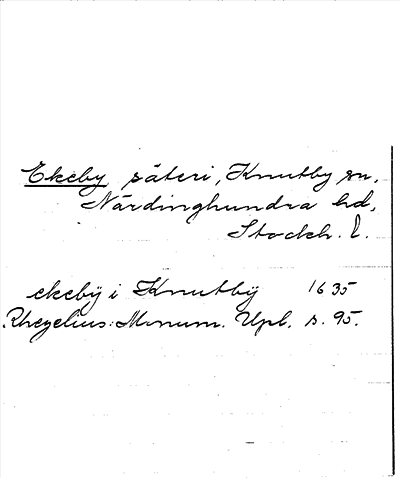 Ekeby säteri, Knutby sn,
Närdinghundra hd,
Stockh. l.
ekebÿ i Knutbÿ 1635
Rhezelius: Monum. Upl. s. 95.